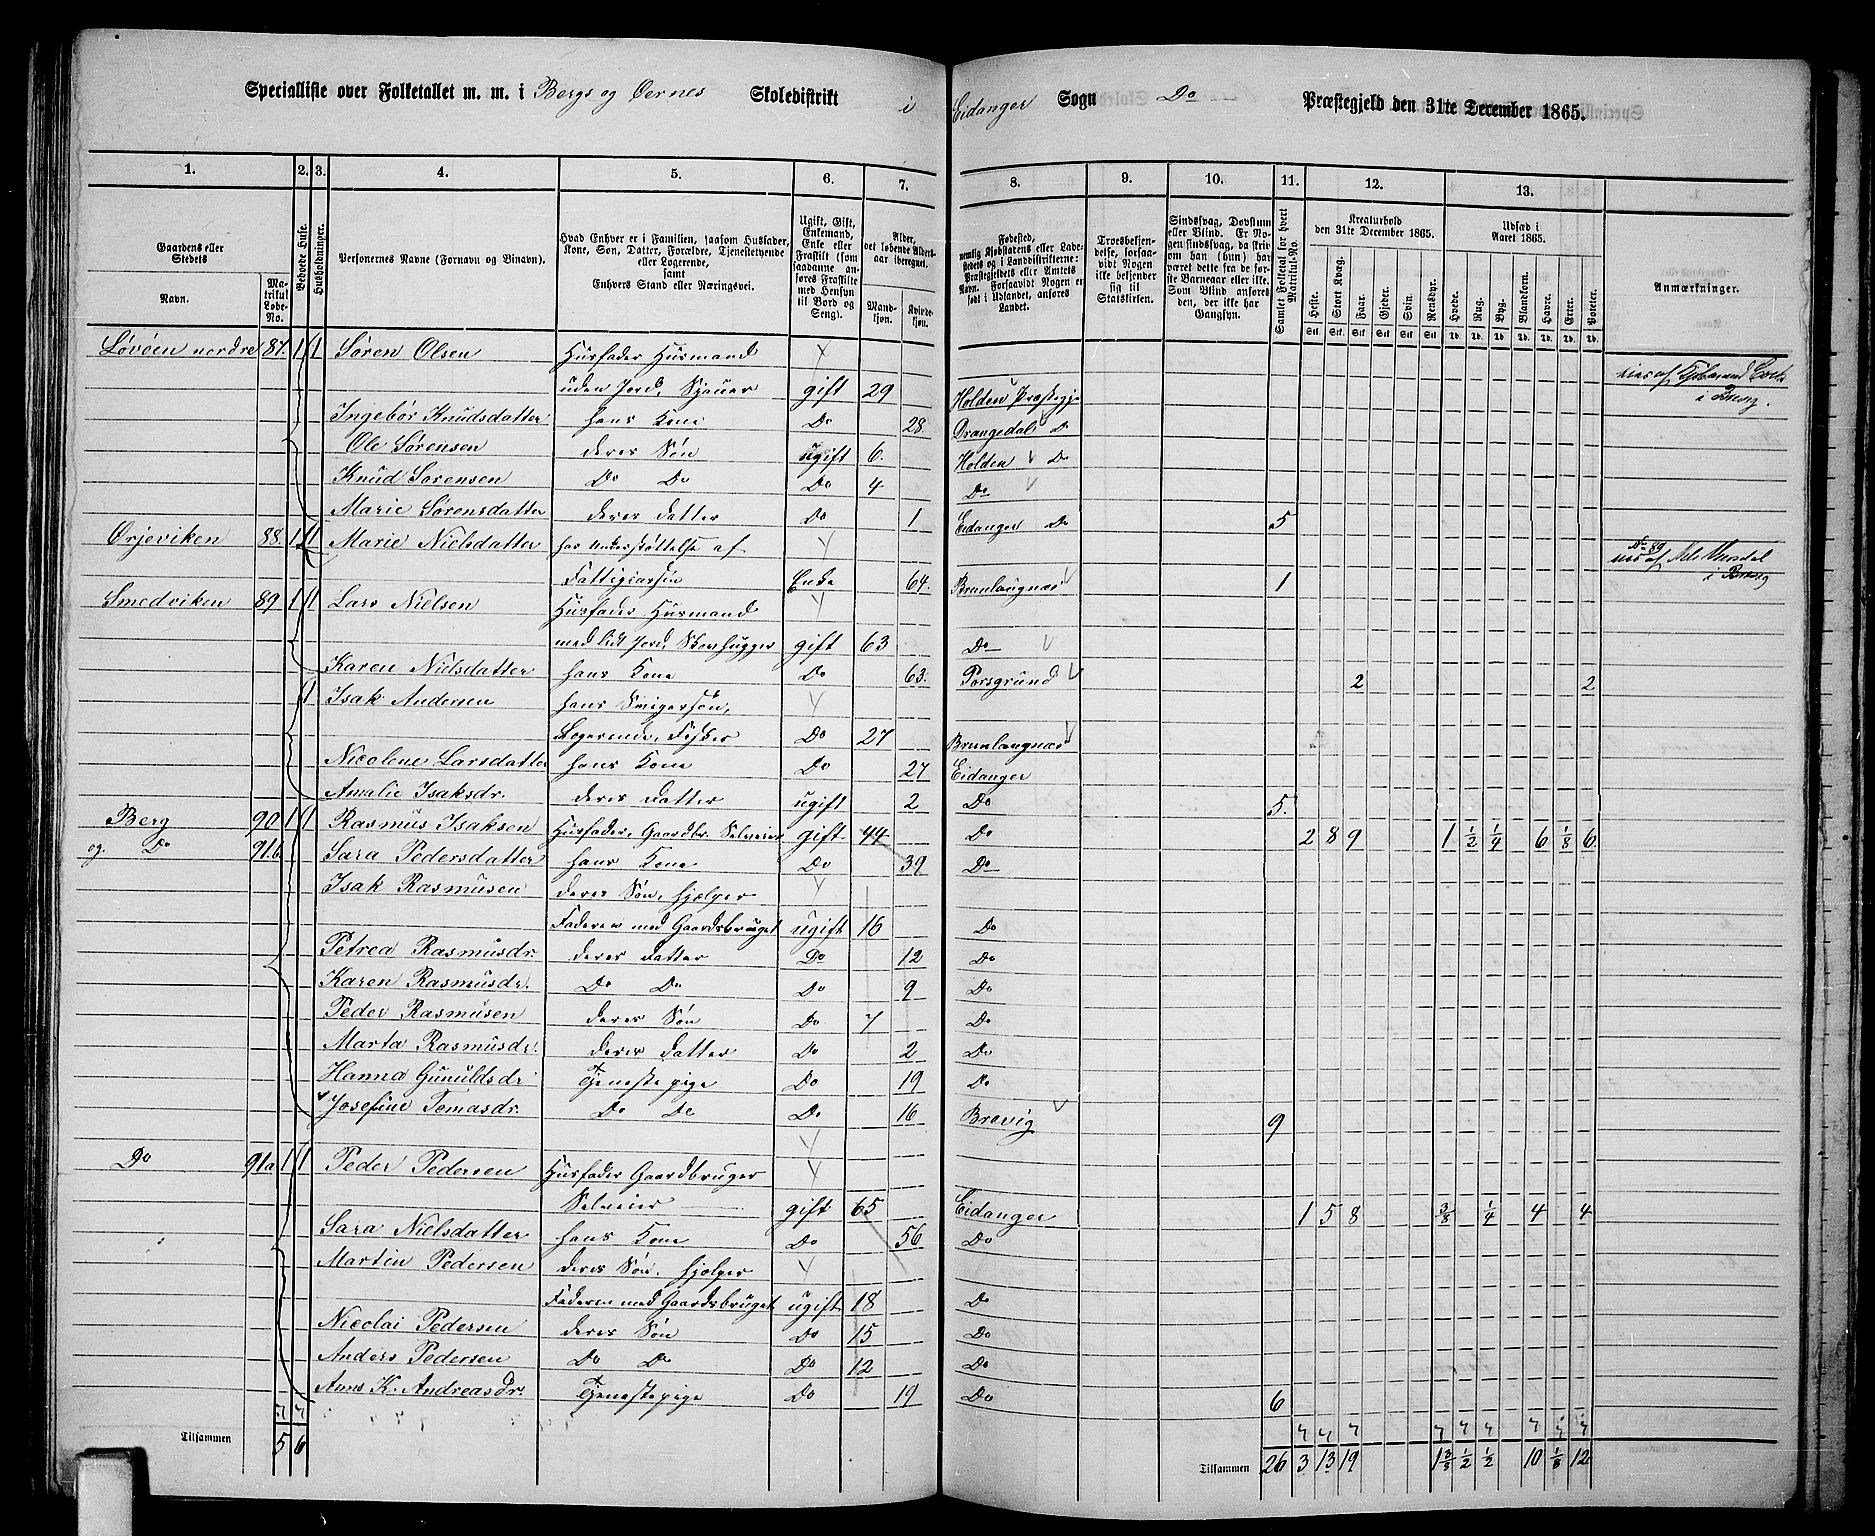 Specialliste over Folketallet m. m. i Bergs og Oernes Skoledistrikt i Eidanger Sogn Do Præstegjeld den 31te December 1865.
1. 2. 3. 4. 5. 6. 7. 8. 9. 10. 11. 12. 13.
Gaardens eller Stedets Navn. Matrikul Løbe-No. Beboede Huse. Husholdninger. Personernes Navne (Fornavn og Binavn). Hvad Enhver er i Familien, saasom Husfader, Kone, Søn, Datter, Forældre, Tjenestetyende eller Logerende, samt Enhvers Stand eller Næringsvei. Ugift, Gift, Enkemand, Enke eller Fraskilt (som saadanne anføres Fraskilte med Hensyn til Bord og Seng). Alder, det løbende Aldersaar iberegnet. Mandkjøn. Kvindekjøn.
Fødested, nemlig Kjøbstadens eller Ladestedets eller i Landdistrikterne: Præstegjeldets eller Amtets Navn. Forsaavidt Nogen er født i Udlandet, anføres Landet. Troesbekjendelse, forsaavidt Nogen ikke bekjender sig til Statskirken. Sindssvag, Døvstum eller Blind. Er Nogen sindssvag, da skriv om han (hun) har været dette fra de første Barneaar eller ikke. Som Blind anføres den, der ikke har Gangsyn. Samlet Folketal for hvert Matrikul-No. Kreaturhold den 31te December 1865. Udsæd i Aaret 1865. Anmærkninger.
Heste. Stort Kvæg. Faar. Gjeder. Svin. Rensdyr. Hvede. Rug. Byg. Blandkorn. Havre. Erter. Poteter.
Løvøen nordre 87. 1 1 Søren Olsen Husfader Husmand
uden Jord, Sjauer gift 29 Holden Præstegj
Ingebør Knudsdatter hans Kone Do 28. Drangedal Do
Ole Sørensen deres Søn ugift 6. Holden Do
Knud Sørensen Do Do Do 4 Do
Marie Sørensdatter deres Datter Do 1 Eidanger Do 5
Ørjeviken 88. 1 1 Marie Nielsdatter har Understøttelse af
Fattigkassen Enke 64. Brunlaugnæs 1
Smedviken 89 1 1 Lars Nielsen Husfader Husmand
med lidt Jord, Steenhugger gift 63 Do
Karen Nielsdatter hans Kone Do 63. Porsgrund 2 2
1 Isak Andersen hans Svigersøn,
Logerende, Fisker Do 27 Brunlaugnæs
Nicolene Larsdatter hans Kone Do 27 Eidanger
Amalie Isaksdr. deres Datter ugift 2 Do 5.
Berg 90 1 1 Rasmus Isaksen Husfader, Gaardbr. Selveier gift 44 Do 2 8 9 1 1/2 1/4 6 1/8 6
og Do 91.b Sara Pedersdatter hans Kone Do 39 Do
Isak Rasmusen deres Søn, hjelper
Faderen med Gaardsbruget ugift 16 Do
Petrea Rasmusdr. deres Datter Do 12 Do
Karen Rasmusdr. Do Do Do 9 Do
Peder Rasmusen deres Søn Do 7 Do
Marta Rasmusdr. deres Datter Do 2 Do
Hanna Gunuldsdr Tjenestepige Do 19 Do
Josefine Tomasdr. Do Do Do 16 Brevig 9
Do 91a 1 1 Peder Pedersen Husfader Gaardbruger
Selveier gift 65 Eidanger 1 5 8 3/8 1/4 4 4
Sara Nielsdatter hans Kone Do 56 Do
Martin Pedersen deres Søn, hjelper
Faderen med Gaardsbruget ugift 18 Do
Nicolai Pedersen deres Søn Do 15 Do
Anders Pedersen Do Do Do 12 Do
Anne K. Andreasdr. Tjenestepige Do 19 Do 6
Tilsammen 5 6 Tilsammen 26 3 13 19 1 3/8 1/2 1/2 10 1/8 12